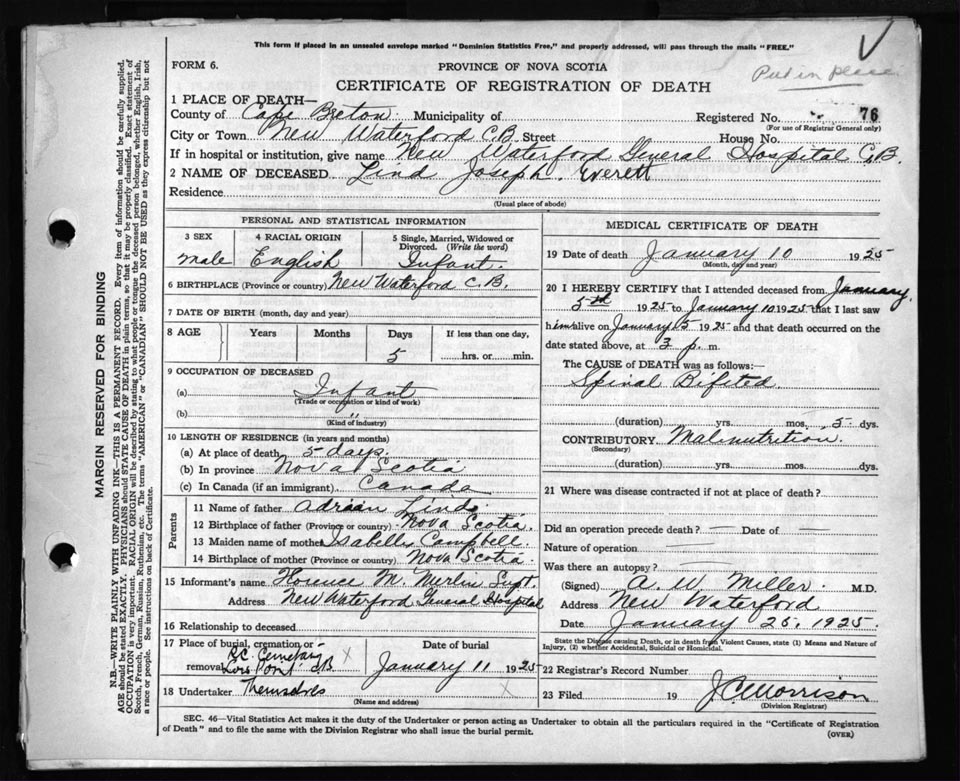 This form if placed in an unsealed envelope marked "Dominion Statistics Free," and properly addressed, will pass through the mails "FREE."
FORM 6.
PROVINCE OF NOVA SCOTIA
Put in place
CERTIFICATE OF REGISTRATION OF DEATH
1 PLACE OF DEATH—
County of Cape Breton Municipality of Registered No. 76
(For use of Registrar General only)
City or Town New Waterford C.B. Street House No.
If in hospital or institution, give name New Waterford General Hospital C.B.
2 NAME OF DECEASED. Lind Joseph. Everett
Residence
(Usual place of abode)
PERSONAL AND STATISTICAL INFORMATION
3 SEX 4 RACIAL ORIGIN 5 Single, Married, Widowed or Divorced. (Write the word)
Male English Infant.
6 BIRTHPLACE (Province or country) New Waterford C.B.
7 DATE OF BIRTH (month, day and year)
8 AGE Years Months Days If less than one day,
5 hrs. or min.
9 OCCUPATION OF DECEASED
(a) Infant
(Trade or occupation or kind of work)
(b) "
(Kind of industry)
10 LENGTH OF RESIDENCE (in years and months)
(a) At place of death 5 days.
(b) In province Nova Scotia
(c) In Canada (if an immigrant) Canada
Parents
11 Name of father Adrian Lind.
12 Birthplace of father (Province or country) Nova Scotia.
13 Maiden name of mother Isabelle Campbell.
14 Birthplace of mother (Province or Country) Nova Scotia.
15 Informant's name Florence M. Merlin Supt.
Address New Waterford General Hospital
16 Relationship to deceased
17 Place of burial, cremation or removal Date of burial
R.C. Cemetary
Low Pont CB January 11 1925
18 Undertaker Themselves
(Name and address)
MEDICAL CERTIFICATE OF DEATH
19 Date of death January 10 1925
(Month, day and year)
20 I HEREBY CERTIFY that I attended deceased from January
5th 1925 to January 10 1925 that I last saw
him alive on January 5 1925 and that death occurred on
date stated above, at 3 p. m.
The CAUSE of DEATH was as follows:
Spinal Bifeted
(duration) yrs. mos. 5 dys.
CONTRIBUTORY. Malnutrition.
(Secondary)
(duration) yrs. mos. dys.
21 Where was disease contracted if not at place of death?
Did an operation precede death? — Date of —
Nature of operation
Was there an autopsy?
(Signed) A. W. Miller. M.D.
Address New Waterford
Date January 25. 1925.
State the Disease causing Death, or in death from Violent Causes, state (1) Means and Nature of Injury, (2) whether Accidental, Suicidal or Homicidal.
22 Registrar's Record Number
23 Filed 19 J.C. Morrison
(Division Registrar)
SEC. 46—Vital Statistics Act makes it the duty of the Undertaker or person acting as Undertaker to obtain all the particulars required in the "Certificate of Registration
of Death" and to file the same with the Division Registrar who shall issue the burial permit.
(OVER)
MARGIN RESERVED FOR BINDING
N.B.—WRITE PLAINLY WITH UNFADING INK—THIS IS A PERMANENT RECORD. Every item of information should be carefully supplied.
AGE should be stated EXACTLY. PHYSICIANS should STATE CAUSE OF DEATH in plain terms, so that it may be properly classified. Exact statement of
OCCUPATION is very important. RACIAL ORIGIN will be described by stating to what people or tongue the deceased person belonged, whether English, Irish,
Scotch, French, German, Russian, Ruthenian, etc. The terms "AMERICAN" or "CANADIAN" SHOULD NOT BE USED as they express citizenship but not
a race or people. See instructions on back of Certificate.